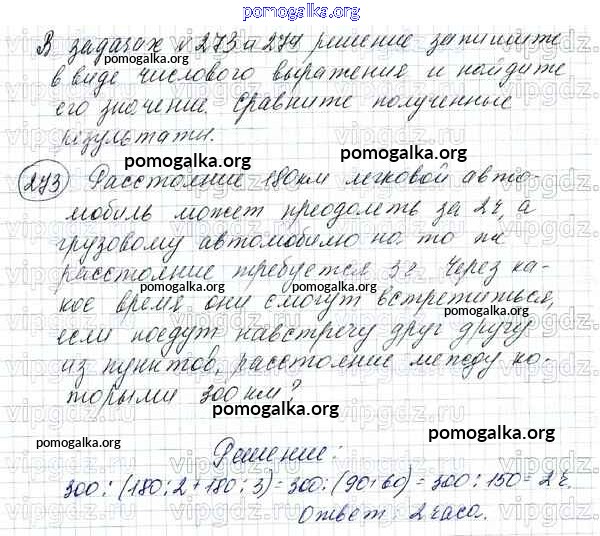 pomogalka.org
В задачах №273 и 274 решение запишите
в виде числового выражения и найдите
его значение. Сравните полученные
результаты.
pomogalka.org
pomogalka.org
273 Расстояние 180 км легковой авто-
мобиль может преодолеть за 2ч, а
грузовому автомобилю на то же
расстояние требуется 3ч. Через ка-
кое время они смогут встретиться,
если поедут навстречу друг другу
из пунктов, расстояние между ко-
торыми 300 км?
pomogalka.org
pomogalka.org
pomogalka.org
pomogalka.org
pomogalka.org
Решение:
300:(180:2+180:3)=300:(90+60)=300:150=2ч.
Ответ: 2 часа.
pomogalka.org
pomogalka.org